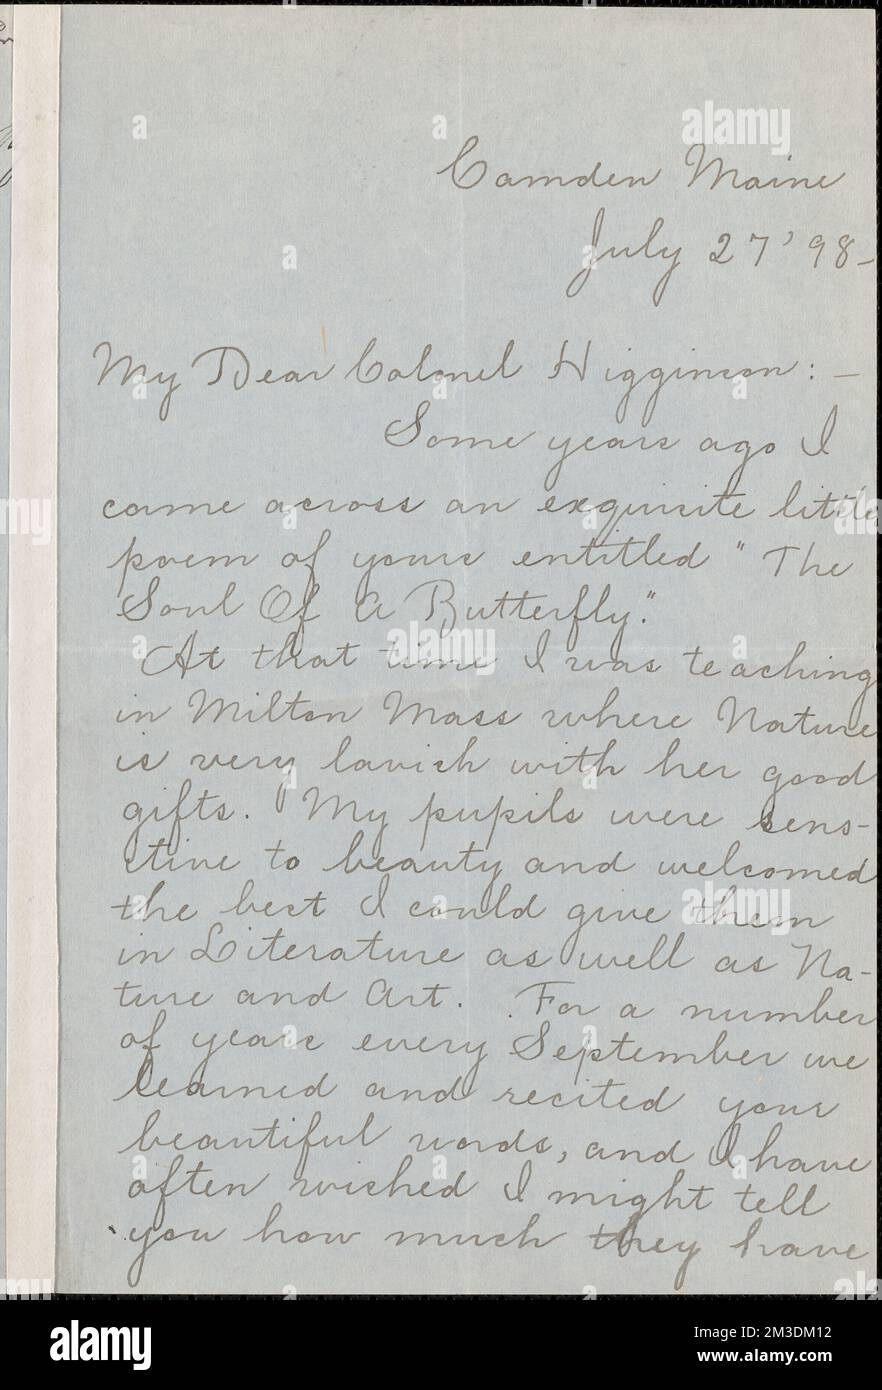 Camden Maine
July 27 '98-
My Dear Colonel Higginson:-
Some years ago I
came across an exquisite little
poem of yours entitled "The
Soul Of A Butterfly."
At that time I was teaching
in Milton Mass where Nature
is very lavish with her good
gifts. My pupils were sens-
itive to beauty and welcomed
the best I could give them
in Literature as well as Na-
ture and Art. For a number
of years every September we
learned and recited your
beautiful words, and I have
often wished I might tell
you how much they have
alamy
Image ID: 2M3DM12
www.alamy.com